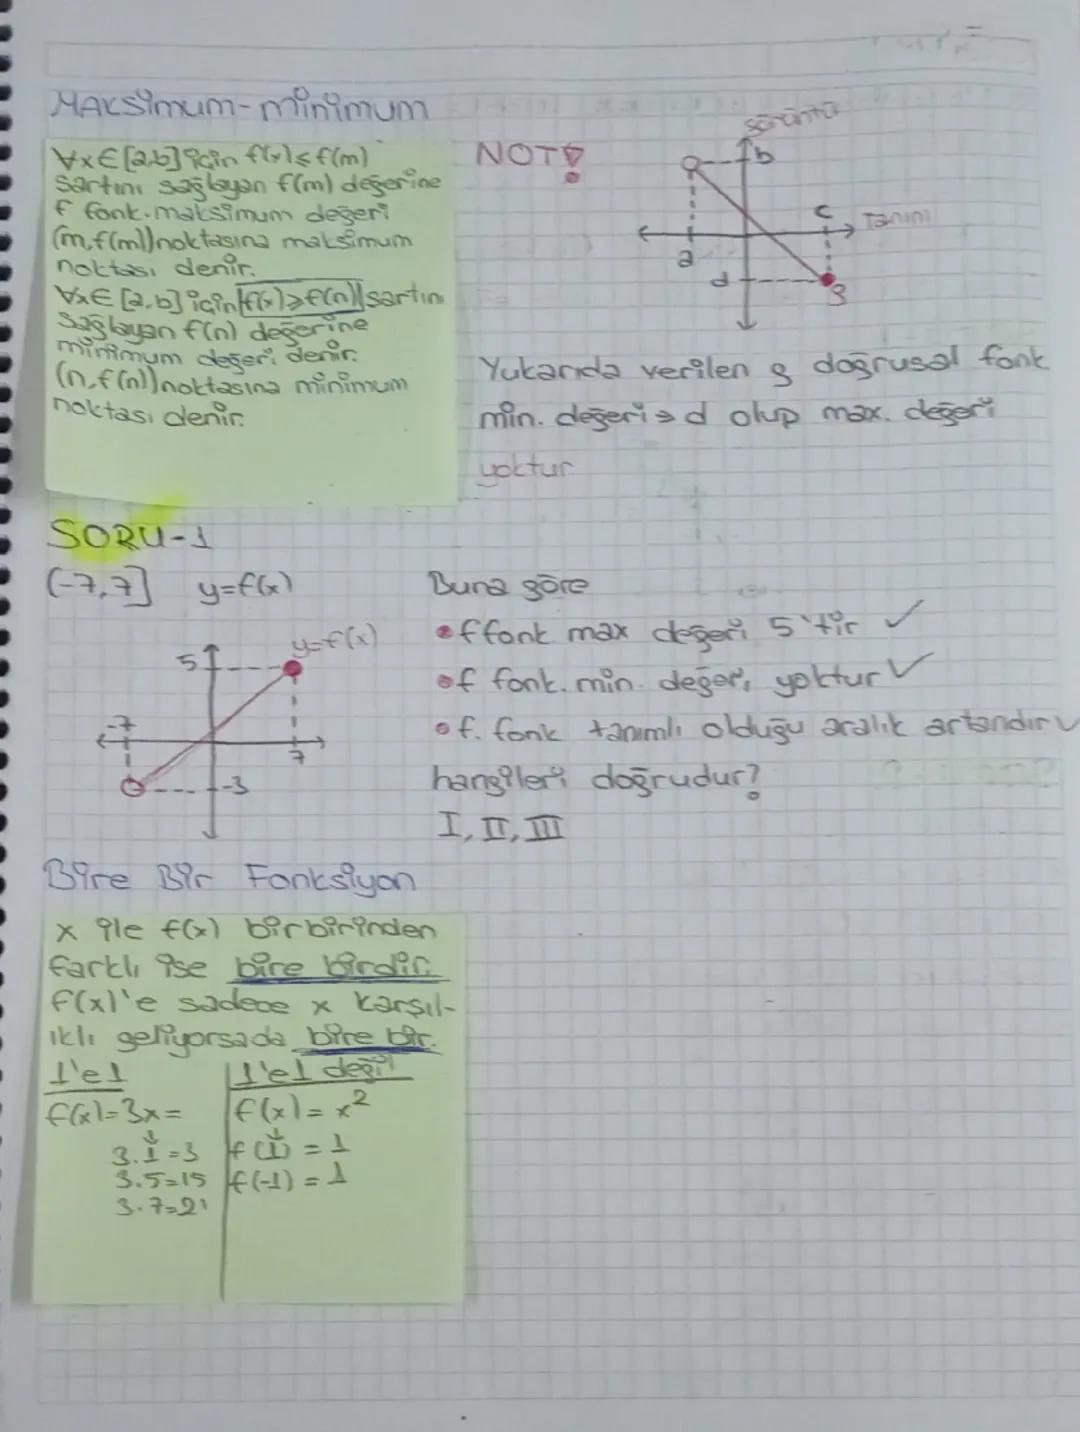 Maksimum-minimum
∀x∈[a,b] için f(x)≤f(m)
şartını sağlayan f(m) değerine
f fonk. maksimum değeri
(m,f(m)) noktasına maksimum
noktası denir.
∀x∈[a,b] için f(x)≥f(n) şartını
sağlayan f(n) değerine
minimum değeri denir.
(n,f(n)) noktasına minimum
noktası denir.
NOT!
görüntü
b
c
Tanım
a
d
g
Yukarıda verilen g doğrusal fonk
min. değeri → d olup max. değeri
yoktur
SORU-1
(-7,7] y=f(x)
y=f(x)
5
-7
7
-3
Buna göre
• f fonk max değeri 5'tir ✓
• f fonk. min. değeri yoktur ✓
• f. fonk tanımlı olduğu aralık artandır ✓
hangileri doğrudur?
I, II, III
Bire Bir Fonksiyon
x ile f(x) birbirinden
farklı ise bire birdir.
f(x)'e sadece x karşıl-
ıklı geliyorsada bire bir.
1'e1
1'e1 değil
f(x)=3x=
3.1=3
3.5=15
3.7=21
f(x)=x²
f(1)=1
f(-1)=1